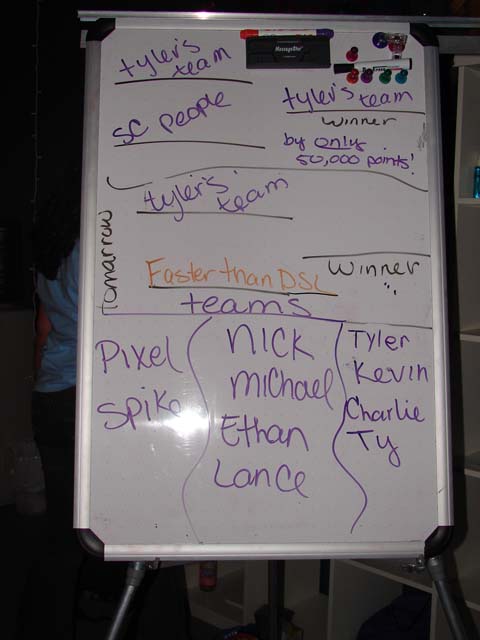 tyler's
team
SC people
tyler's team
winner
by only
50,000 points!
tyler's
team
Tomarrow
Faster than DSL
winner
teams
Pixel
Spike
Nick
Michael
Ethan
Lance
Tyler
Kevin
Charlie
Ty